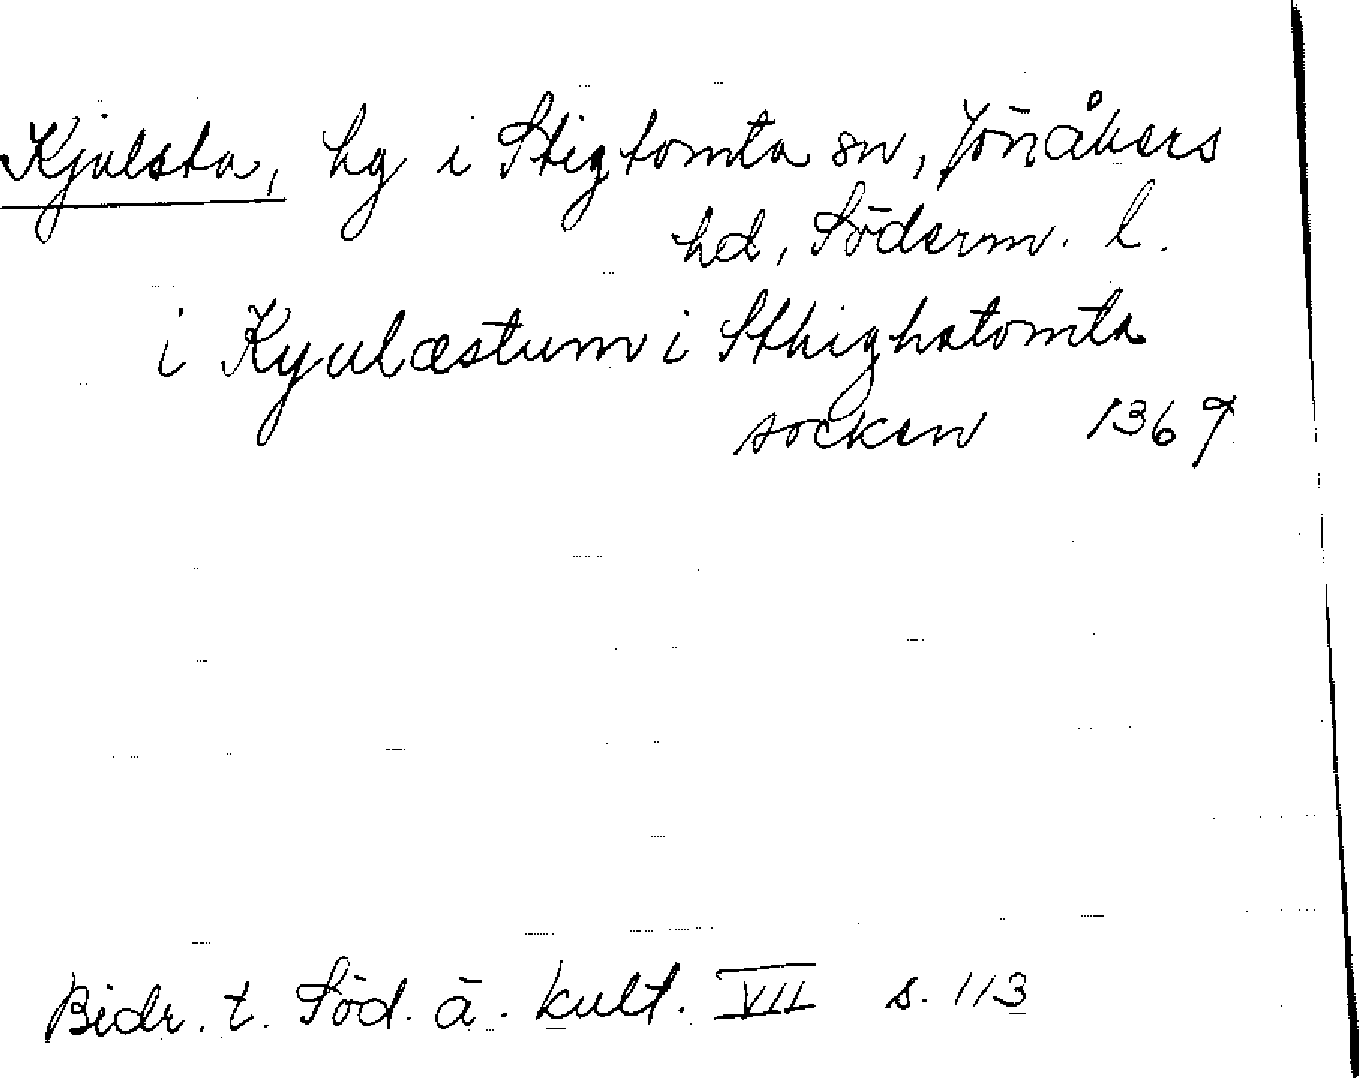 Kjulsta, hg i Stigtomta sn, Jönåkers
hd, Söderm. l.
i Kyulæstum i Sthighatomta
socken 1367
Bidr. t. Söd. ä. kult. VII s. 113